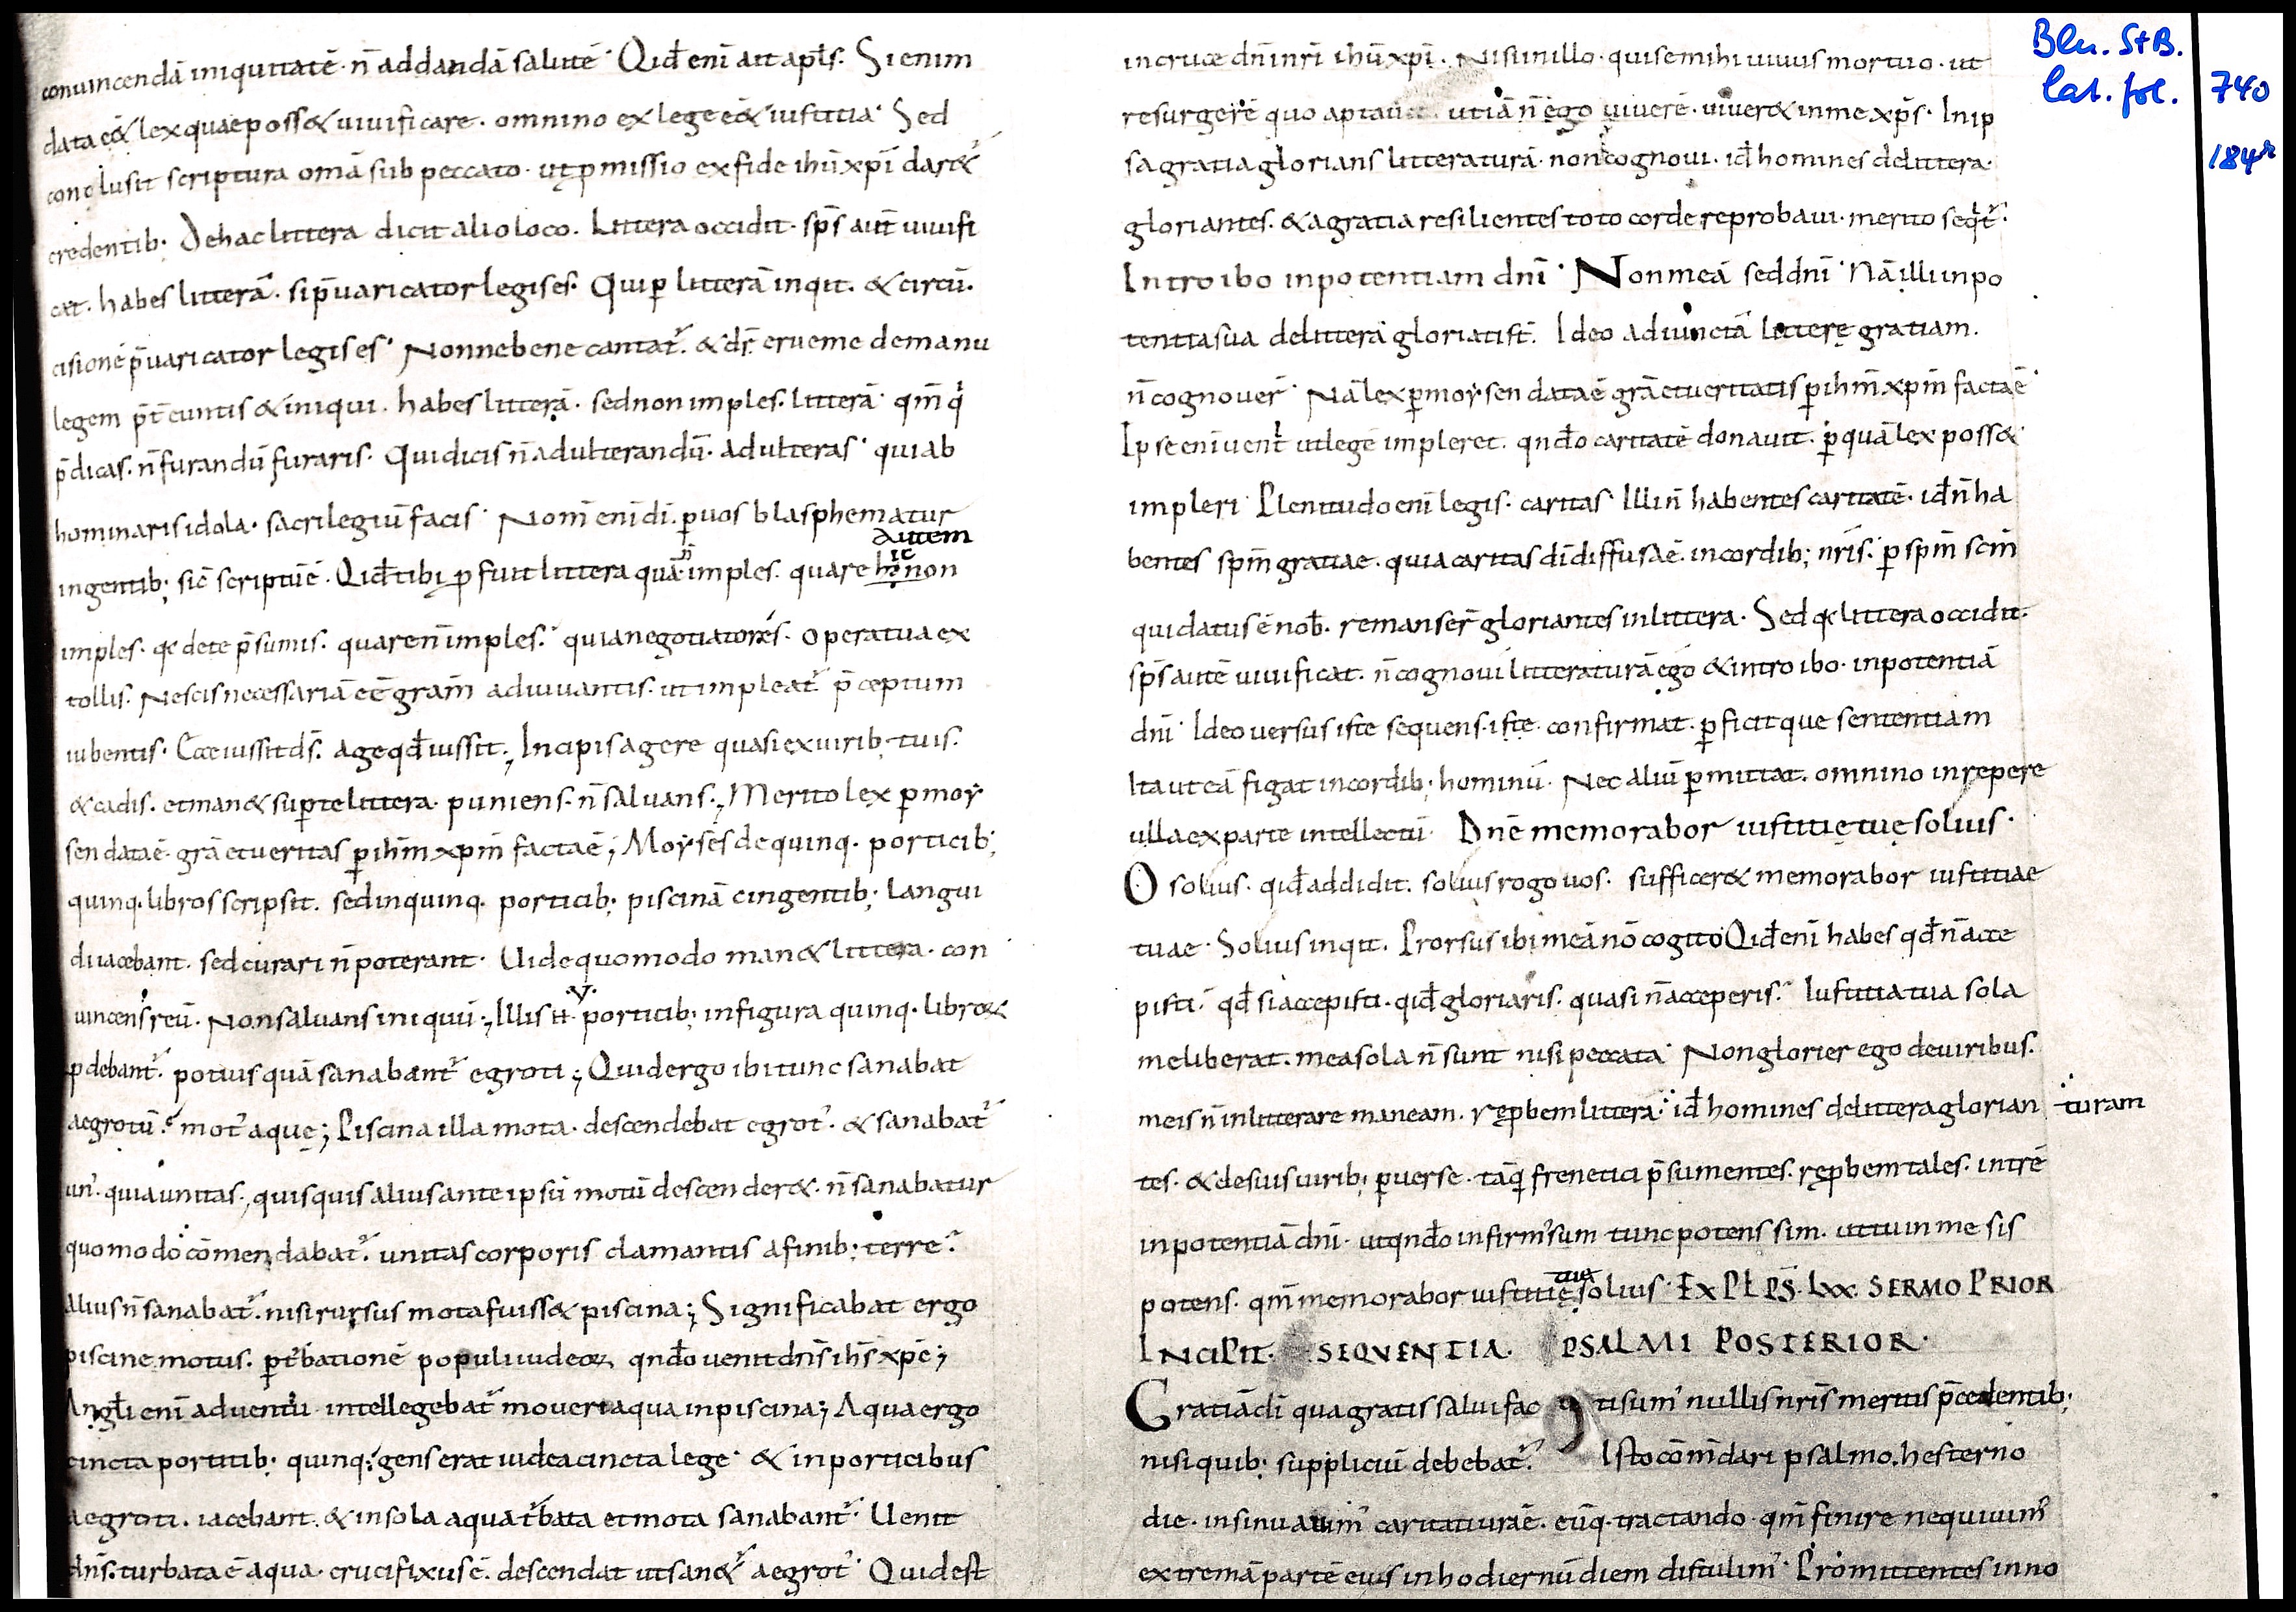 conuincendā iniquitatē · n̄ addandā salutē · Qid̄ enī ait apl̄s · Si enim
data eē& lex quae poss& uiuificare · omnino ex lege eē& iustitia · Sed
conclusit scriptura om̄a sub peccato · ut p̱missio ex fide ihū xp̄i dar&᷑
credentib; De hac littera dicit alio loco · Littera occidit · sp̄s aut̄ uiuifi
cat · habes litterā · si p̄uaricator legis es · Qui ꝑ litterā inqit · & circū·
cisionē p̄uaricator legis es · Nonne bene cantat᷑ · & dr̄ erue me de manu
legem p̄t̄euntis & iniqui · habes litterā · sed non imples · litterā · qm̄ qͥ
p̄dicas · n̄ furandū furaris · Qui dicis n̄ adulterandū · adulteras · qui ab
hominaris idola · sacrilegiū facis · Nom̄ enī dī · ꝑ uos blasphematur
autem
ingentib; sic̄ scriptū ē · Qid̄ tibi ꝓfuit littera quā n̄ imples · quare ho ic non
imples · qꝛ de te p̄sumis · quare n̄ imples · quia negotiator es · opera tua ex
tollis · Nescis necessariā eē gram̄ adiuuantis · ut impleat᷑ p̄ceptum
iubentis · Ecce iussit ds̄ · age qd̄ iussit ; Incipis agere quasi ex uirib; tuis ·
& cadis · et man& suꝑ te littera · puniens · n̄ saluans ; Merito lex ꝑ moẏ
sen data ē · grā et ueritas ꝑ ihm̄ xpm̄ facta ē ; Moẏses de quinq · porticib;
quinq · libros scripsit · sed in quinq · porticib; piscinā cingentib; Langui
di iacebant · sed curari n̄ poterant · Uide quomodo man& littera · con
uincens reū · Non saluans iniquū ; Illis ·v· porticib; in figura quinq · libroꝝ
ꝓdebant᷑ · potius quā sanabant᷑ egroti ; Quid ergo ibi tunc sanabat
aegrotū · mot᾽ aquę ; Piscina illa mota · descendebat egrot᾽ · & sanabat᷑
un᾽ · quia unitas · quisquis alius ante ipsū motū descender& · n̄ sanabatur
quomodo cōmendabat᷑ · unitas corporis clamantis a finib; terre ·
Alius n̄ sanabat᷑ · nisi rursus mota fuiss& piscina ; Significabat ergo
piscine motus · ꝑt᷑batione populi iudeoꝝ, qn̄do uenit dn̄s ih̄s xp̄c ;
Angl̄i enī aduentu intellegebat᷑ moueri aqua in piscina ; Aqua ergo
cincta porticib; quinq ; gens erat iudea cincta lege · & in porticibus
aegroti · iacebant · & in sola aqua t᷑bata et mota sanabant᷑ · Uenit
dn̄s · turbata ē aqua · crucifixus ē · descendat ut san&᷑ aegrot᾽ · Quid est
in cruce dn̄i nr̄i ihū xp̄i · Nisi in illo · qui se mihi unus mortuo · ut
resurgerē quo aptauit · ut iā n̄ ego uiuerē · uiuer& in me xp̄s · In ip
sa gratia glorians litteraturā · non cognoui · id̄ homines de littera·
gloriantes · & a gratia resilientes toto corde reprobaui · merito seqͥt᷑ ·
Introibo in potentiam dn̄i · Non meā sed dn̄i · Nā illi in po
tentia sua de litterā gloriati st̄ · Ideo adiunctā litterę gratiam ·
n̄ cognouer̄ · Nā lex ꝑ moẏsen data ē grā et ueritatis ꝑ ihm̄ xpm̄ facta ē ·
Ipse enī uenit ut legē impleret · qn̄do caritatē donauit · ꝑ quā lex poss&
impleri · Plenitudo enī legis · caritas · Illi n̄ habentes caritatē · id̄ n̄ ha
bentes spm̄ gratiae · quia caritas dī diffusa ē · in cordib; nr̄is · ꝑ spm̄ scm̄
qui datus ē nob̄ · remanser̄ gloriantes in littera · Sed qꝛ littera occidit·
sp̄s autē uiuificat · n̄ cognoui litteraturā ego & introibo · in potentiā
dn̄i · Ideo uersus iste sequens · iste · confirmat · ꝑficitque sententiam
Ita ut eā figat in cordib; hominū · Nec aliū ꝑmittat · omnino inrepere
ulla ex parte intellectū · Dn̄e memorabor iustitię tuę solius ·
O solius · qid̄ addidit · solius rogo uos · sufficer& memorabor iustitiae
tuae · Solius inqit · Prorsus ibi meā nō cogito Qid̄ enī habes qd̄ n̄ acce
pisti · qd̄ si accepisti · qid̄ gloriaris · quasi n̄ acceperis · Iustitia tua sola
me liberat · mea sola n̄ sunt nisi peccata · Non glorier ego de uiribus ·
meis n̄ in littera remaneam · ręp̱bem littera· id̄ homines de littera glorian
turam
tes · & de suis uirib; ꝑuerse · tāqͣ frenetici p̄sumentes · ręp̱bem tales · intrē
in potentiā dn̄i · ut qn̄do infirm᾽ sum tunc potens sim · ut tu in me sis
potens · qm̄ memorabor iustitię tuę solius · EXPLI PS̄ · LXX · SERMO PRIOR
INCIPIT · SEQVENTIA · PSALMI POSTERIOR ·
Gratiā dī qua gratis salui facti sum᾽ nullis nr̄is meritis p̄cedentib;
nisi quib; suppliciū debebat᷑ · Isto cōm̄dari psalmo · hesterno
die · insinuauim᾽ caritati ur̄ae · eūq · tractando · qm̄ finire nequiuim᾽
extremā partē eius in hodiernū diem distulim᾽ · Promittentes in no
Bln. StB.
lat. fol. 740
184r